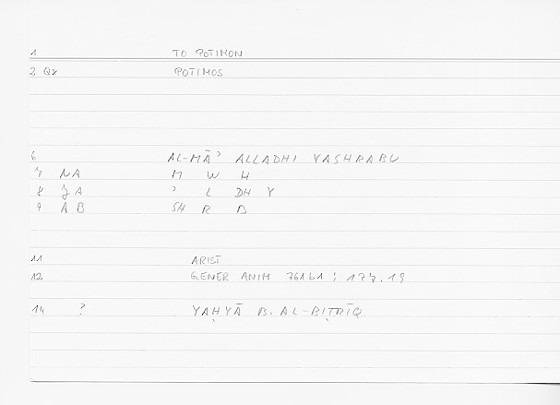 1 TO POTIMON
2 Qr POTIMOS
6 AL-MĀʾ ALLADHI YASHRABU
7 NA M W H
8 JA ʾ L DH Y
9 AB SH R B
11 ARIST
12 GENER ANIM 761b1 ; 177.19
14 ? YAḤYĀ B. AL-BIṬRĪQ